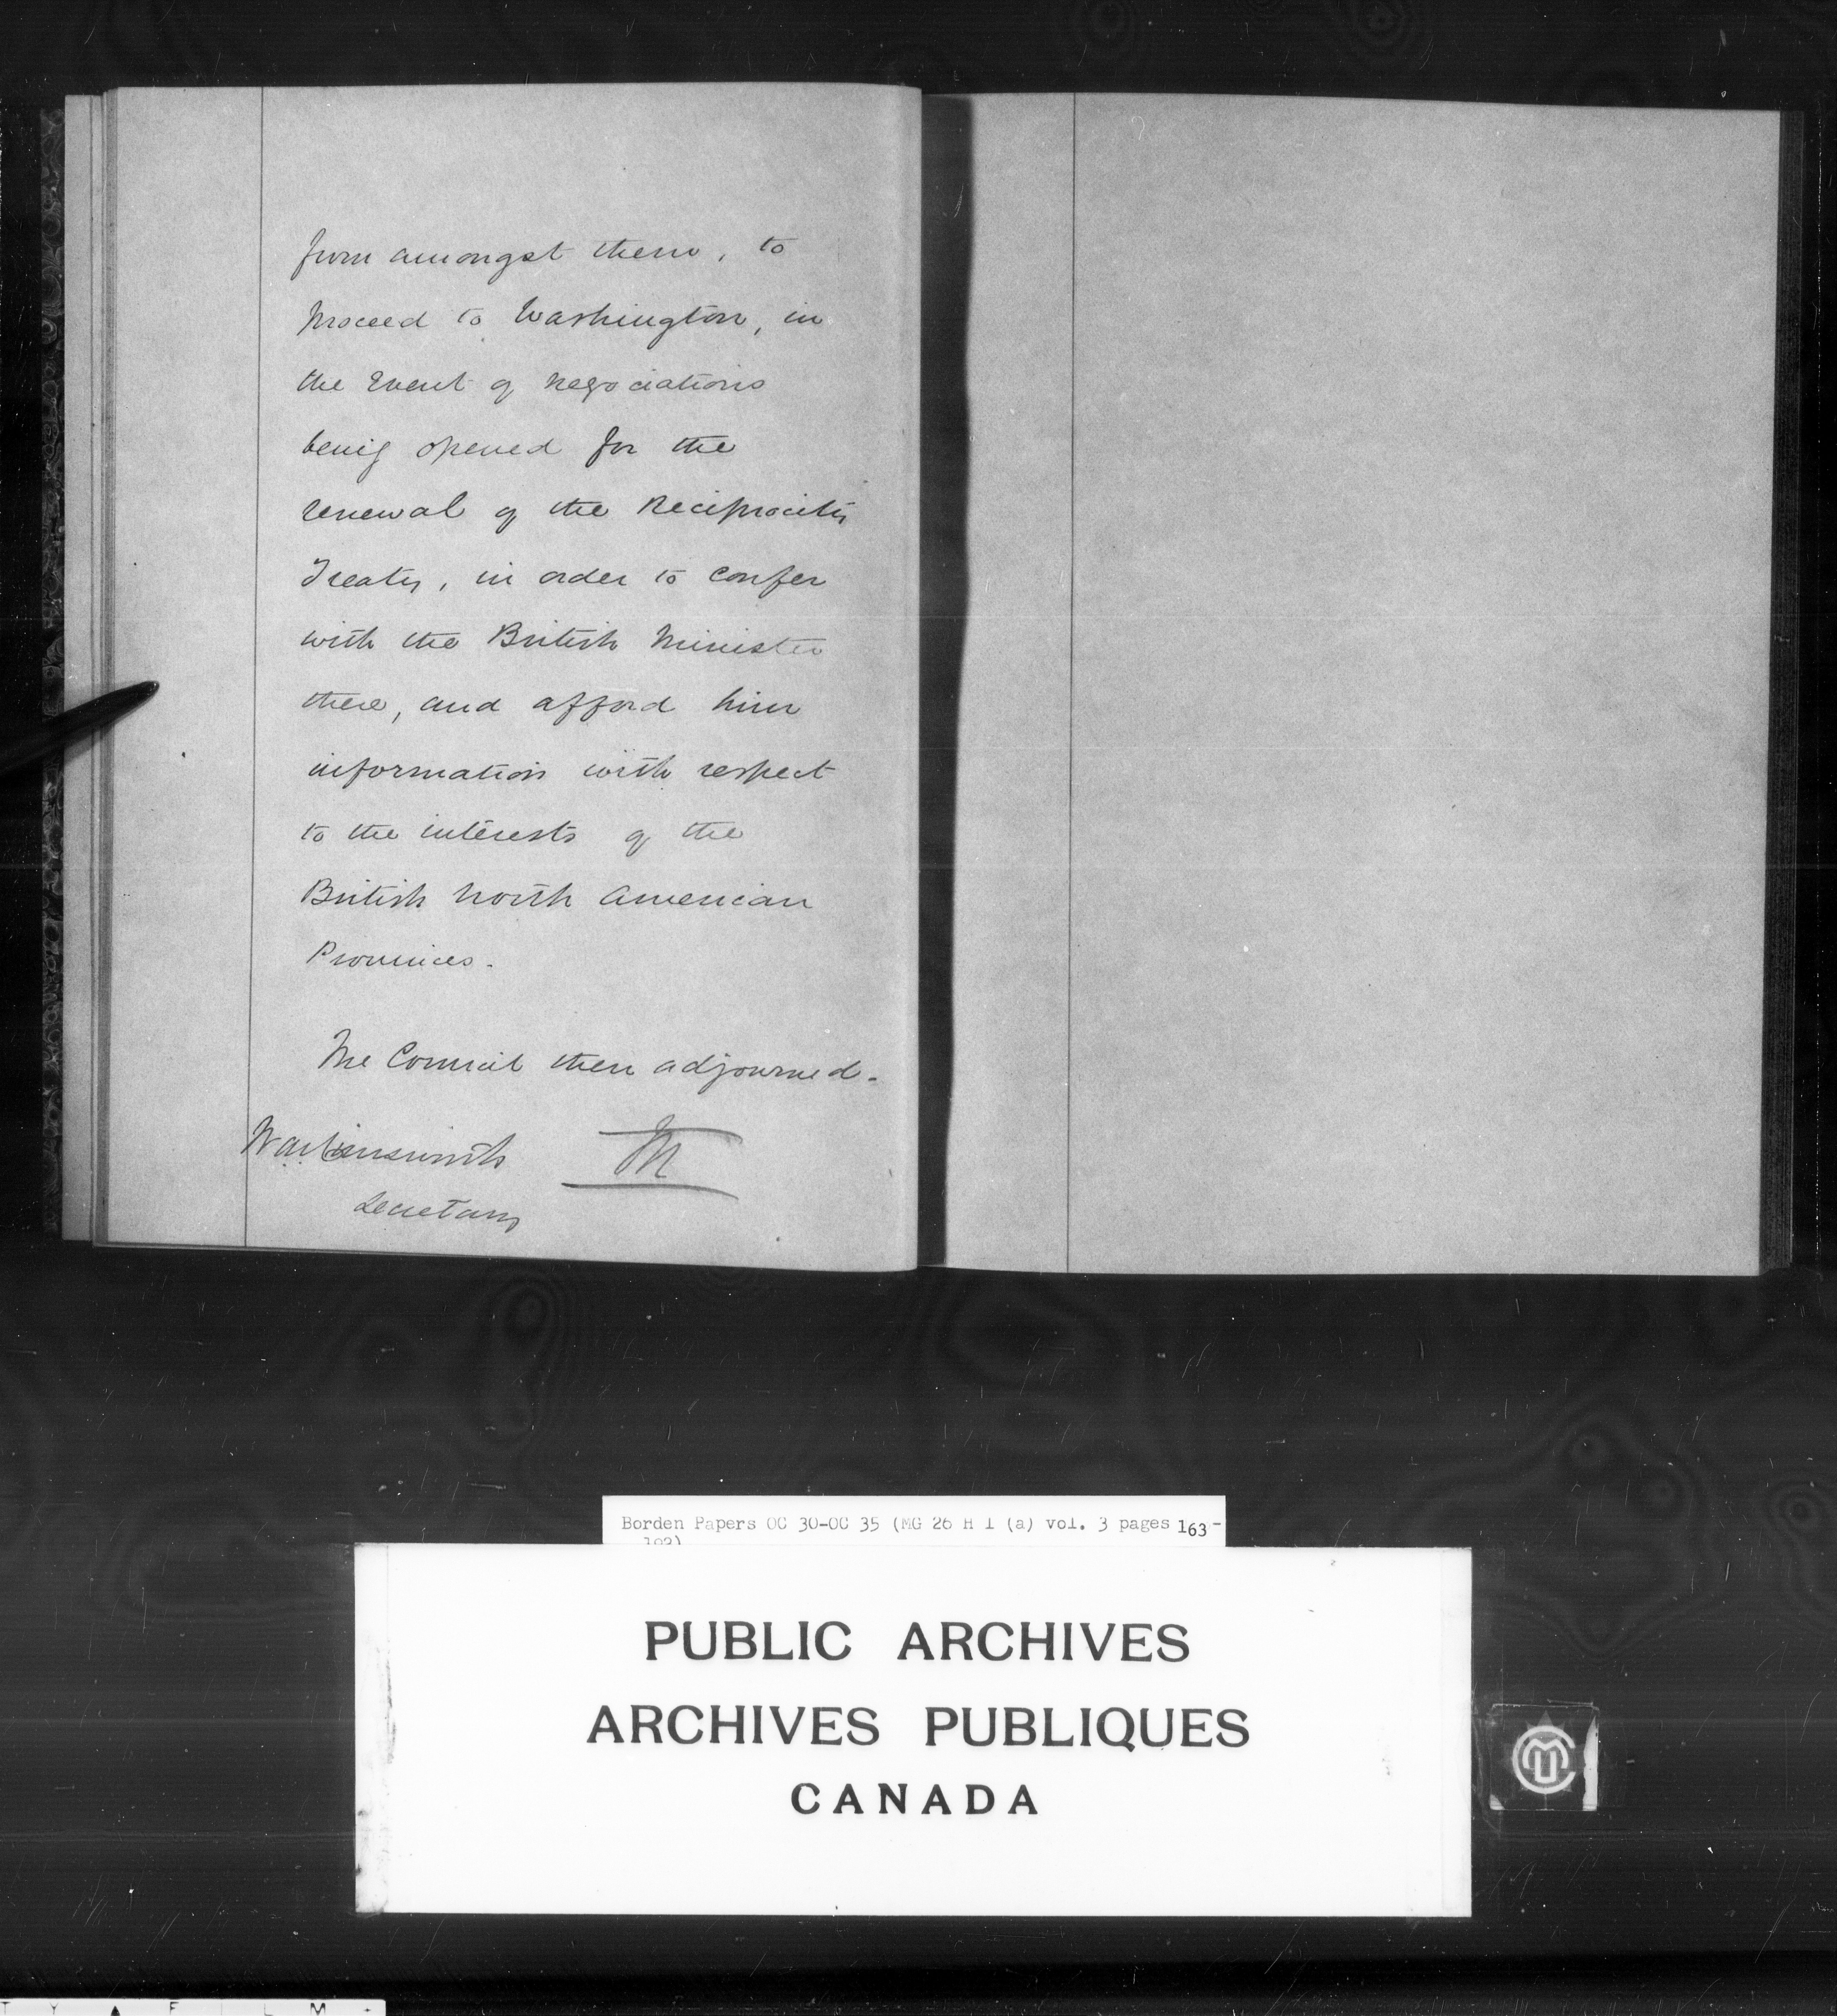 from amongst them, to
proceed to Washington, in
the Event of negociations
being opened for the
renewal of the Reciprocity
Treaty, in order to confer
with the British Minister
there, and afford him
information with respect
to the interests of the
British North American
Provinces.
The Council then adjourned.
M
Secretary
Borden Papers OC 30-OC 35 (MG 26 H 1 (a) vol. 3 pages 163-
192)
PUBLIC ARCHIVES
ARCHIVES PUBLIQUES
CANADA